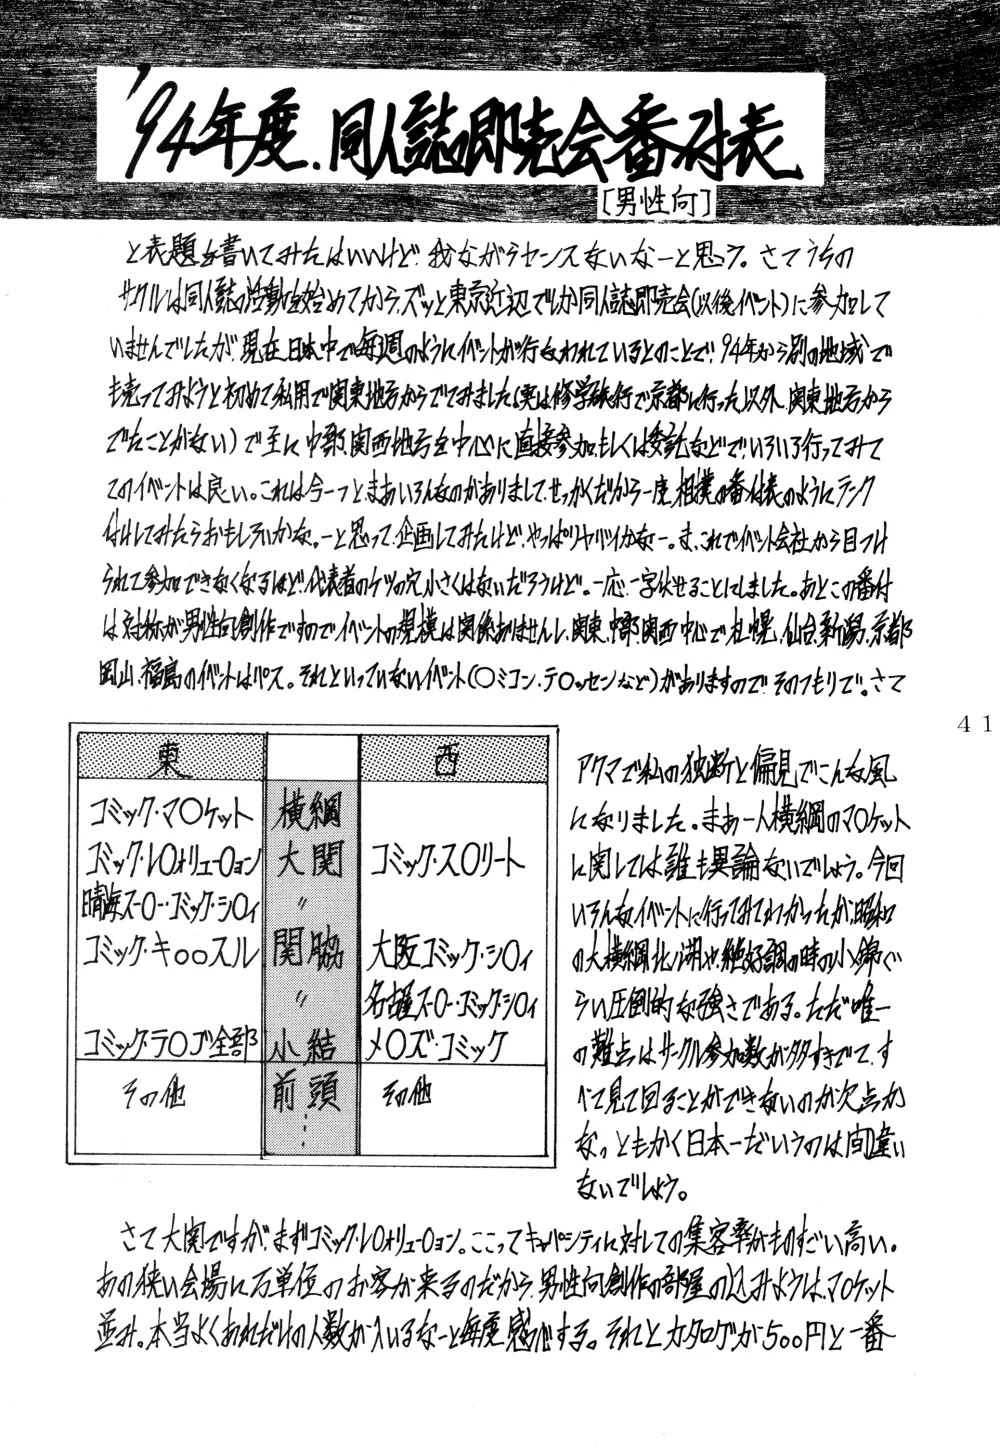 '94年度、同人誌即売会番付表
[男性向]
と表題を書いてみたはいいけど、我ながらセンスないなーと思う。さてうちの
サークルは同人誌の活動を始めてから、ズッと東京近辺でしか同人誌即売会(以後イベント)に参加して
いませんでしたが、現在、日本中で毎週のようにイベントが行なわれているとのことで、94年から別の地域で
も売ってみようと初めて私用で関東地方からでてみました(実は修学旅行で京都に行った以外、関東地方から
でたことがない)で主に中部、関西地方を中心に直接参加、もしくは委託などで、いろいろ行ってみて
てのイベントは良い。これは今一つとまあいろんなのがありまして、せっかくだから一度、相撲の番付表のようにランク
付けしてみたらおもしろいかな。ーと思って、企画してみたけど、やっぱりヤバイかなー。ま、これでイベント会社から目つけ
られて参加できなくなるほど、代表者のケツの穴小さくはないだろうけど。一応、一字伏せることにしました。あとこの番付
は対称が男性向創作ですのでイベントの規模は関係ありませんし、関東、中部、関西中心で札幌、仙台、新潟、京都
岡山、福島のイベントはパス。それといっていないイベント(○ミコン、テ○ッセンなど)がありますので、そのつもりで。さて
41
東 西
コミック・マ○ケット 横綱
コミック・レ○ォリュー○ョン 大関 コミック・ス○リート
晴海スー○ー・コミック・シ○ィ 〃
コミック・キ○○スル 関脇 大阪コミック・シ○ィ
〃 名古屋スー○ー・コミック・シ○ィ
コミック・テ○ゴ全部 小結 メ○ズ・コミック
その他 前頭 その他
アクマで私の独断と偏見でこんな風
になりました。まあ一人横綱のマ○ケット
に関しては誰も異論ないでしょう。今回
いろんなイベントに行ってみてわかったが、昭和
の大横綱北ノ湖や、絶好調の時の小錦ぐ
らい圧倒的な強さである。ただ唯一
の難点はサークル参加数が多すぎてて、す
べて見て回ることができないのが欠点か
な。ともかく日本一だいうのは間違い
ないでしょう。
さて大関ですが、まずコミック・レ○ォリュー○ョン。ここってキャパシティに対しての集客率がものすごい高い。
あの狭い会場に万単位のお客が来るのだから、男性向創作の部屋の込みようは、マ○ケット
並み。本当よくあれだけの人数が入いるなーと毎度感心する。それとカタログが500円と一番